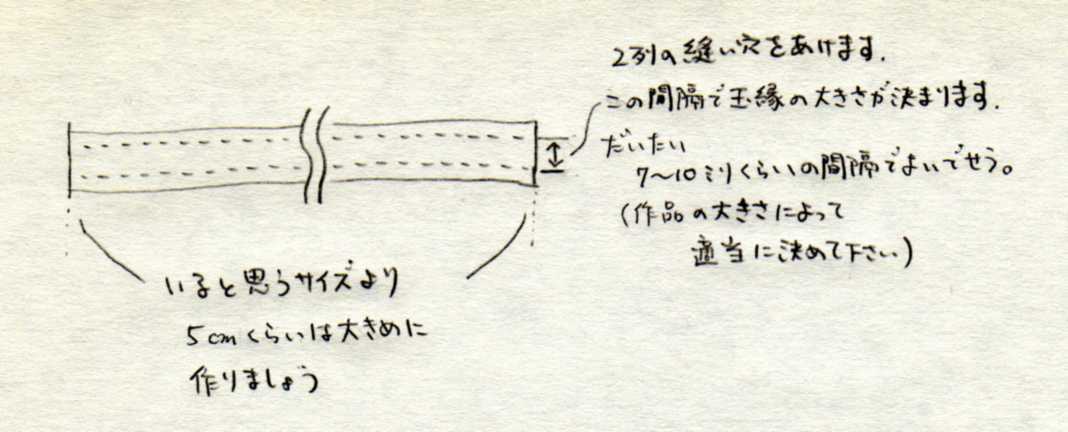 2列の縫い穴をあけます.
この間隔で玉縁の大きさが決まります.
だいたい
7〜10ミリくらいの間隔でよいでせう。
(作品の大きさによって
適当に決めて下さい)
いると思うサイズより
5cmくらいは大きめに
作りましょう